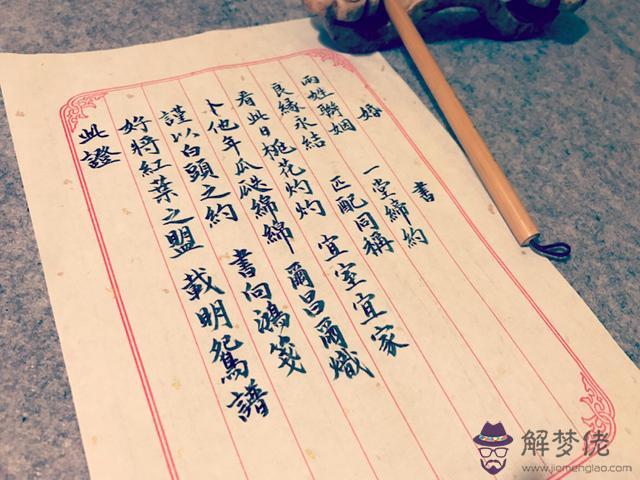 婚 書
兩姓聯姻 一堂締約
良緣永結 匹配同稱
看此日桃花灼灼 宜室宜家
卜他年瓜瓞綿綿 爾昌爾熾
謹以白頭之約 書向鴻箋
好將紅葉之盟 載明鴛譜
此證
解梦佬
www.jiemenglao.com